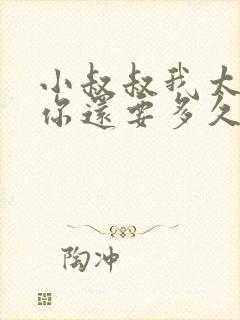 小叔叔我大
你還要多久
陶冲